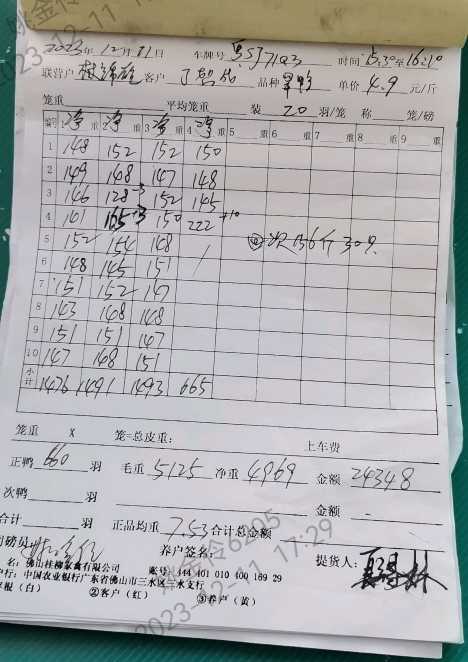 2023年12月11日 车牌号 粤SJ71Q3 时间 15:30至16:10
联营户 客户 品种 单价 4.9 元/斤
笼重 平均笼重 装 20 羽/笼 称 笼/磅
编号 1 净 重 2 净 重 3 净 重 4 净 重 5 重 6 重 7 重 8 重 9 重
1 148 152 152 150
2 149 148 147 148
3 146 128-3 152 145
4 101 165+3 150 222 +10
5 152 154 148
6 148 145 151
7 151 152 147
8 143 148 148
9 151 151 147
10 147 148 151
小计 1476 1491 1493 665
笼重 X 笼=总皮重: 上车费
正鸭 660 羽 毛重 5125 净重 4969 金额 24348
次鸭 羽 金额 -
合计 羽 正品均重 7.53 合计总金额
司磅员: 养户签名: 提货人:
名: 佛山桂柳家禽有限公司 账号: 444 401 010 400 169 29
户行: 中国农业银行广东省佛山市三水区 支行
(白) ②客户(红) ③养户(黄)
姚金伶6205
2023-12-11 17:29